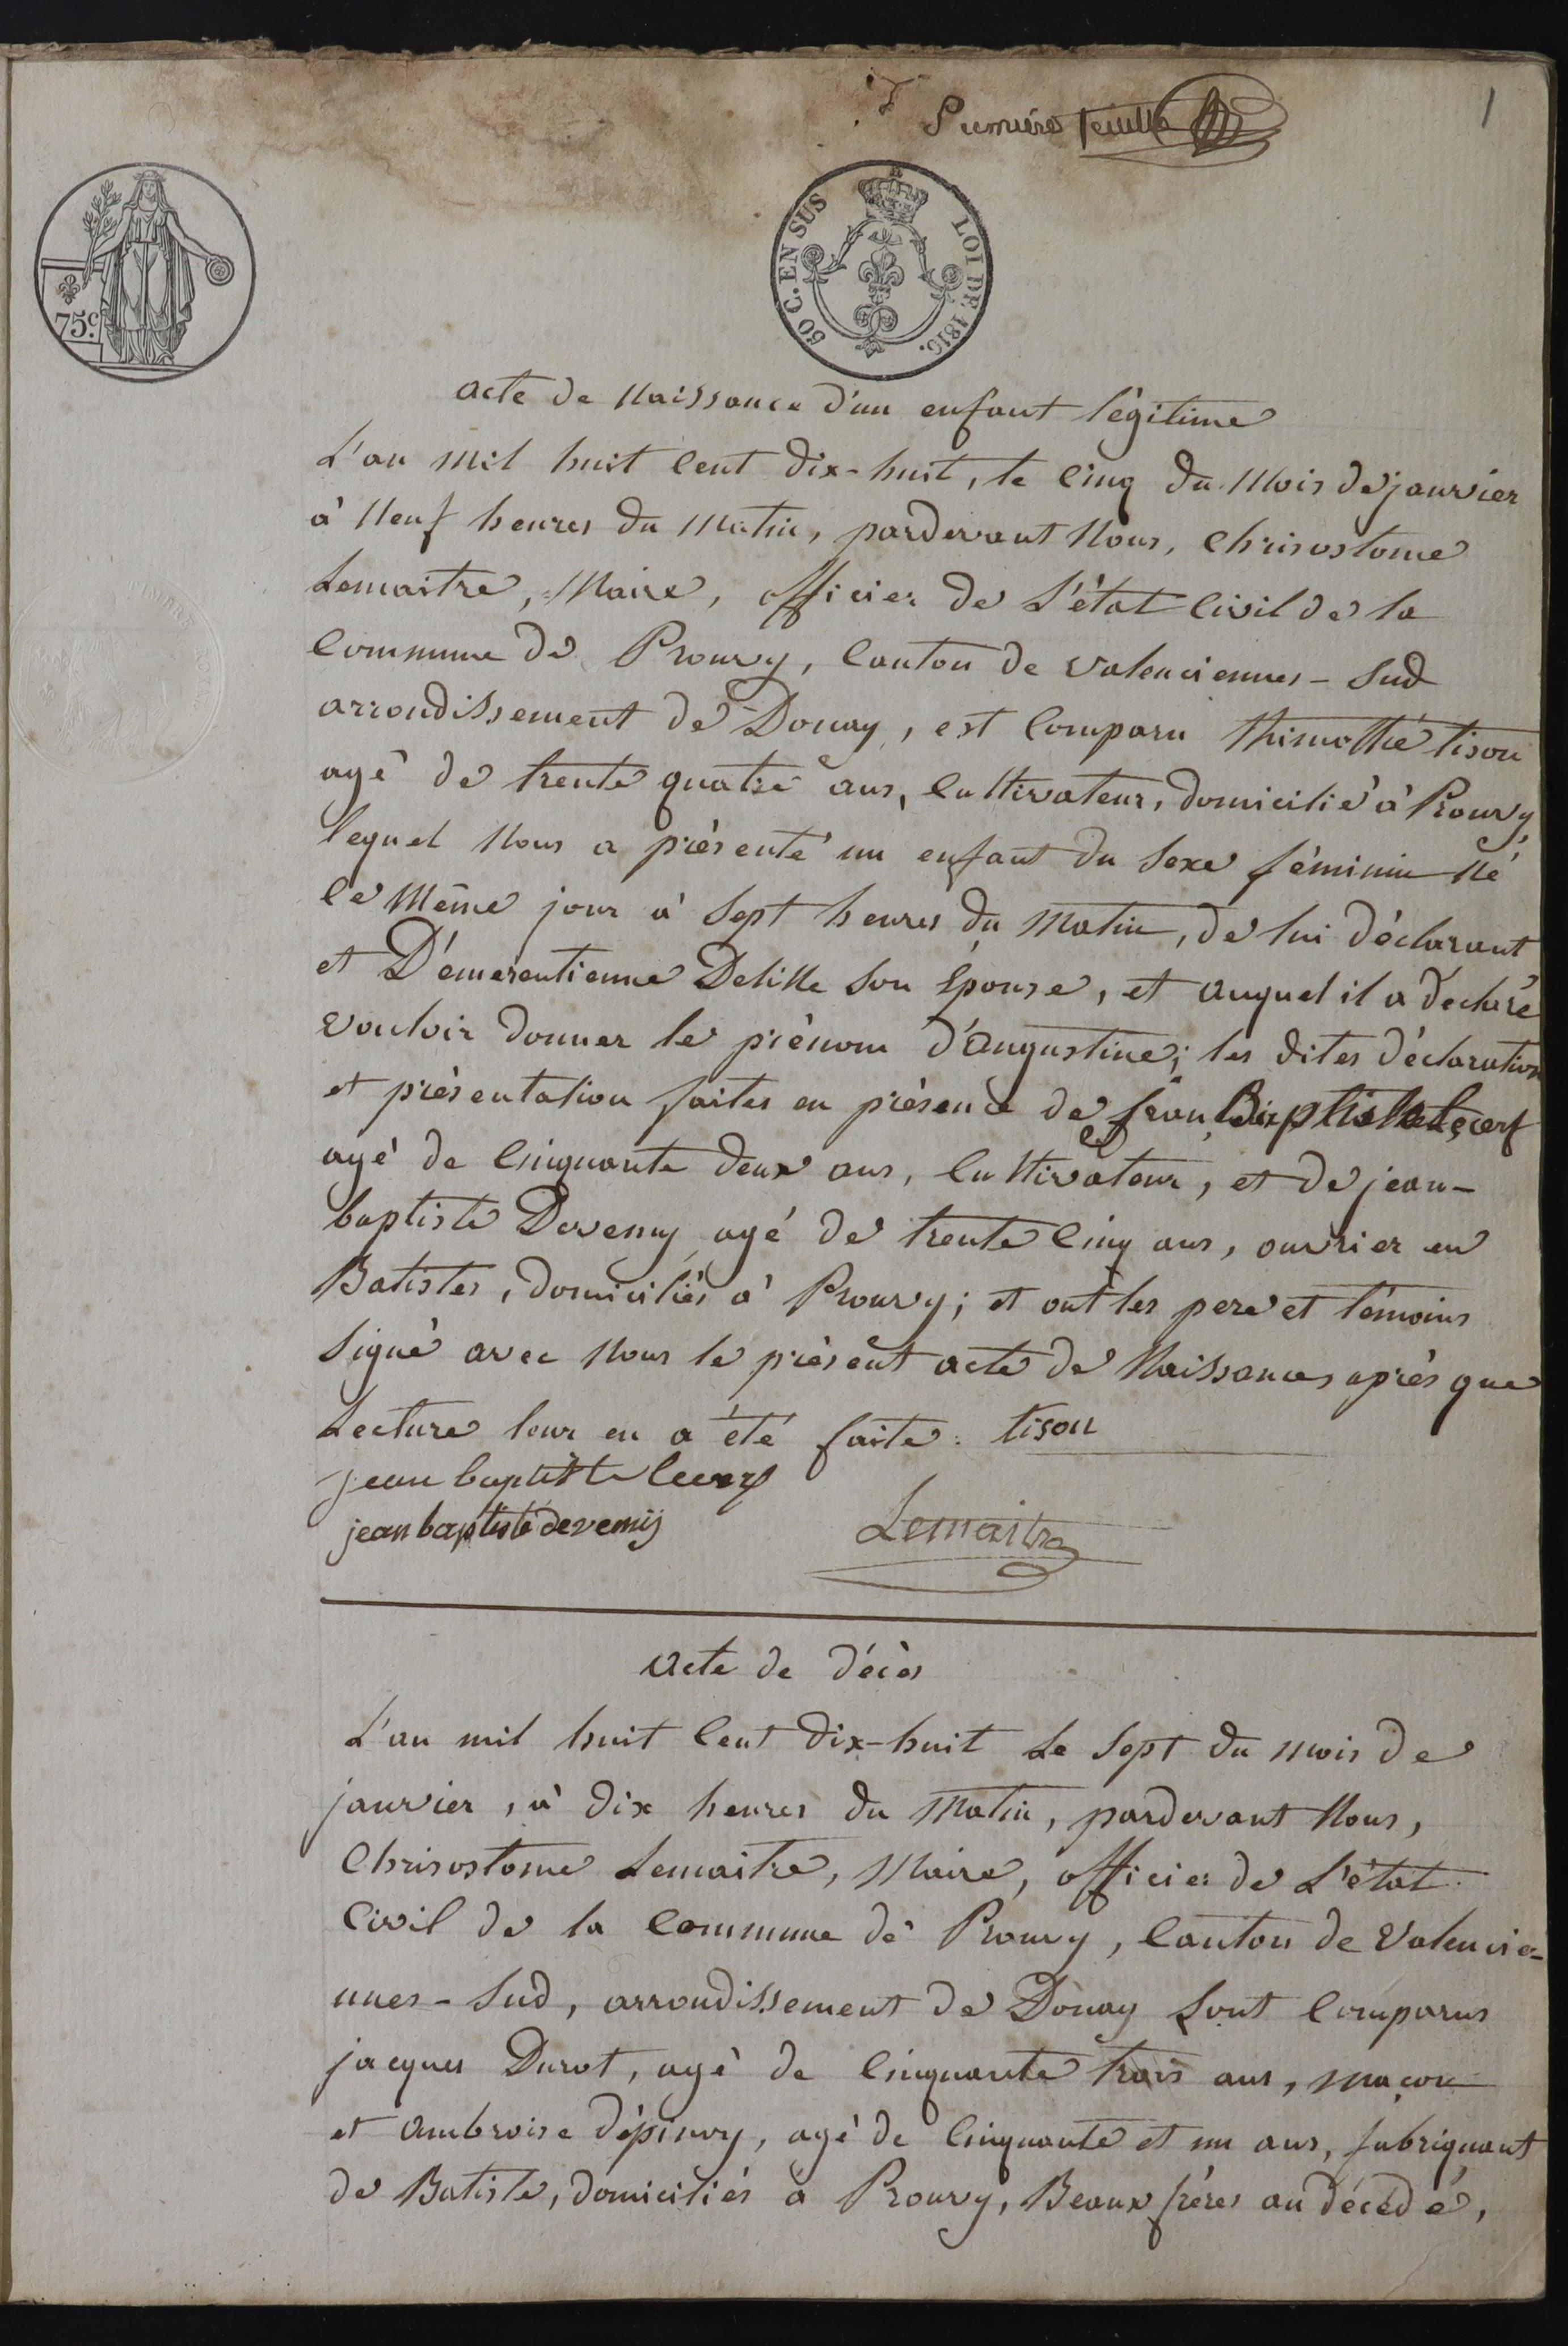 Premiere feuille
1
75 c.
50 C. EN SUS
LOI DE 1816.
acte de Naissance d'un enfant légitime
L'an mil huit Cent dix-huit, le cinq du Mois de janvier
à Neuf heures du matin, pardevant Nous, Chrisostome
Lemaitre, Maire, officier de L'état Civil de la
Commune de Prouvy, Canton de Valenciennes-Sud
arrondissement de Douay, est Comparu thimothé tison
agé de trente quatre ans, Cultivateur, domicilié à Prouvy,
lequel Nous a présenté un enfant du Sexe féminin Né
le Même jour à Sept heures du Matin, de lui déclarant
et D'émerentienne Delille Son épouse, et auquel il a déclaré
vouloir donner le prénom d'Augustine; les dites déclaration
et présentation faites en présence de jean Baptiste Lecerf
agé de Cinquante deux ans, Cultivateur, et de jean-
baptiste Devemy agé de trente Cinq ans, ouvrier en
Batistes, domiciliés à Prouvy; et ont les pere et témoins
Signé avec Nous le présent acte de Naissances après que
Lecture leur en a été faite. tison
jean baptiste lecerf
jean baptiste devemij
Lemaitre
Acte de décès
L'an mil huit Cent Dix-huit Le Sept du mois de
janvier, à dix heures du Matin, pardevant Nous,
Chrisostome Lemaitre, Maire, officier de L'état
Civil de la Commune de Prouvy, Canton de Valencie-
nnes-Sud, arrondissement de Douay Sont Comparus
jacques Durot, agé de Cinquante trois ans, maçon
et Ambroise dépinoy, agé de Cinquante et un ans, fabriquant
de Batiste, domiciliés à Prouvy, Beaux frères au décédé,